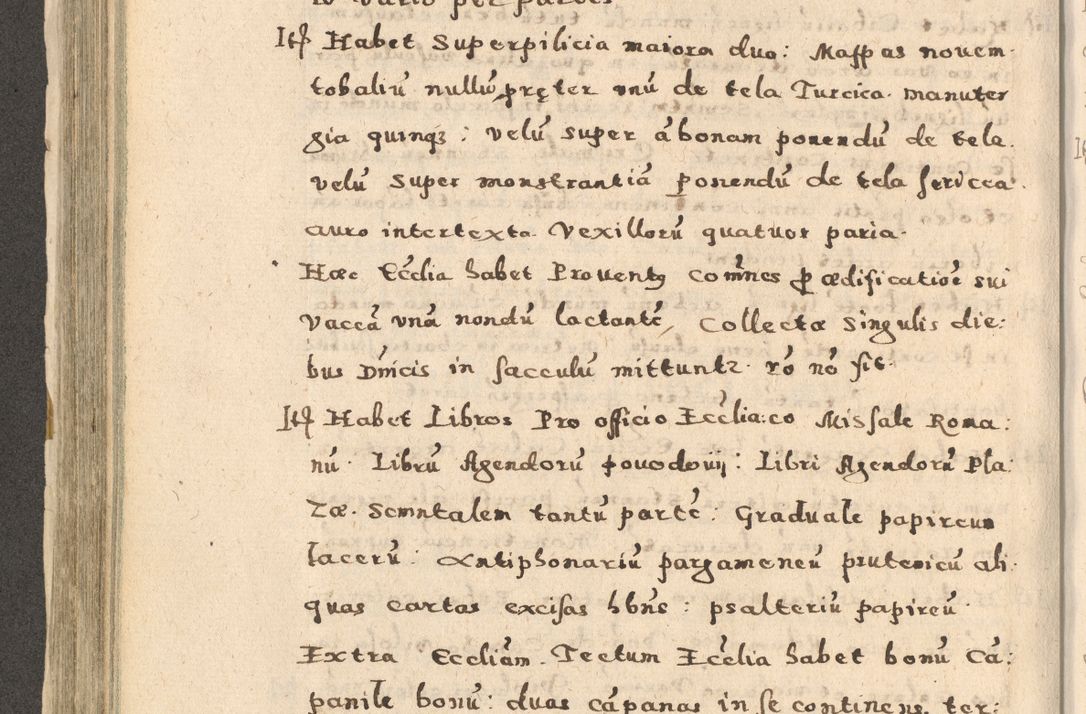 Itẽ Habet Superpilicia maiora duo: Mappas novem
tobaliũ nullũ pręter unũ de tela Turcica. manuter
gia quinqȝ: velũ super ãbonam ponendũ de tela.
velũ super monstrantiã ponendũ de tela sericea
auro intertexta. Vexillorũ quatuor paria.
Hæc Ecclia habet Proventꝯ com̃nes ꝓ ædificatiõe sui
vaccã unã nondũ lactantẽ, Collectæ singulis die:
bus Dñicis in sacculũ mittuntꝛ rõ nõ fit.
Itẽ Habet Libros Pro officio Ecclia:co Missale Roma:
nũ. Librũ Agendorũ Libri Agendorũ Pla:
zæ. tantũ partẽ: Graduale papireum
lacerũ: Antiphonariũ pargameneũ prutenicũ ali:
quas cartas excisas hbñs: psalteriũ papireũ
Extra Eccliam. Tectum Ecclia habet bonũ Cã:
panile bonũ: duas cãpanas in se continens. ter: